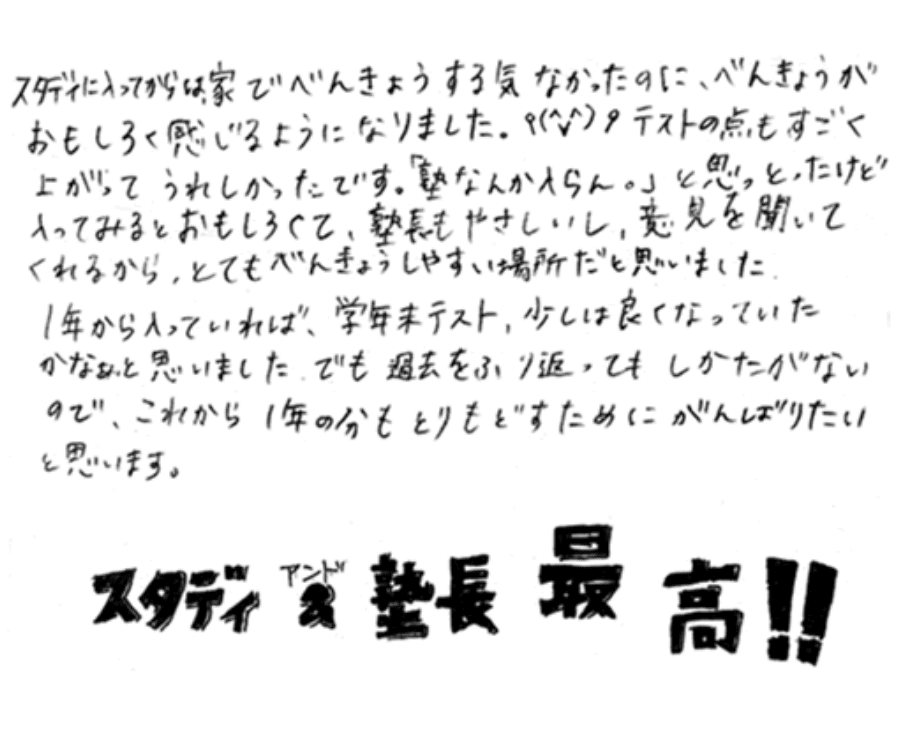 スタディに入ってからは、家でべんきょうする気なかったのに、べんきょうが
おもしろく感じるようになりました。٩(^v^)۶テストの点もすごく
上がってうれしかったです。「塾なんか入らん。」と思っとったけど
入ってみるとおもしろくて、塾長もやさしいし、意見を聞いて
くれるから、とてもべんきょうしやすい場所だと思いました.
1年から入っていれば、学年末テスト、少しは良くなっていた
かなぁと思いました.でも過去をふり返ってもしかたがない
ので、これから1年の分もとりもどすためにがんばりたい
と思います。
アンド
スタディ&塾長最高!!